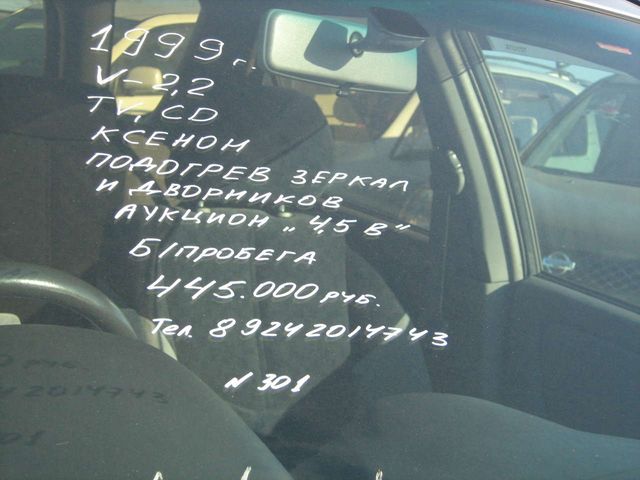 1999г.
V-2,2
TV, CD
КСЕНОМ
ПОДОГРЕВ ЗЕРКАЛ
И ДВОРНИКОВ
АУКЦИОН „4,5 В"
Б/ПРОБЕГА
445.000 РУБ.
Тел. 89242014743
N 301